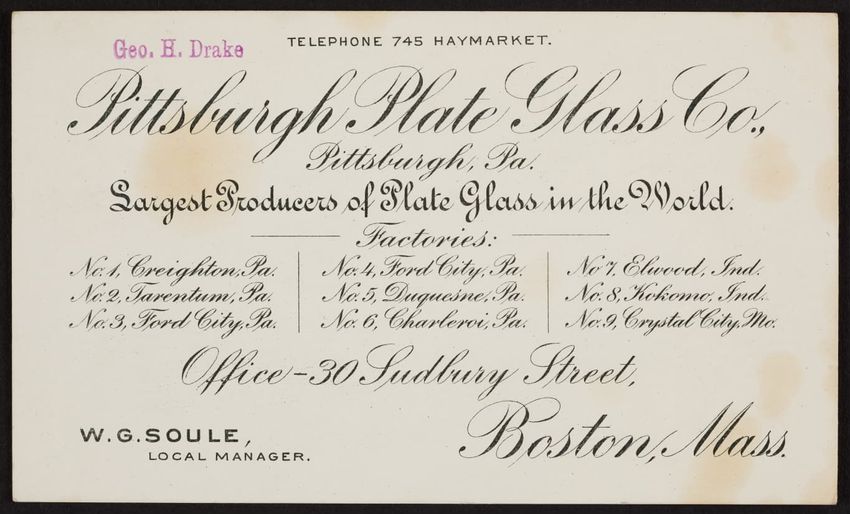 Geo. H. Drake
TELEPHONE 745 HAYMARKET.
Pittsburgh Plate Glass Co.,
Pittsburgh, Pa.
Largest Producers of Plate Glass in the World.
Factories:
No. 1, Creighton, Pa.
No. 2, Tarentum, Pa.
No. 3, Ford City, Pa.
No. 4, Ford City, Pa.
No. 5, Duquesne, Pa.
No. 6, Charleroi, Pa.
No 7, Elwood, Ind.
No. 8, Kokomo, Ind.
No. 9, Crystal City, Mo.
Office - 30 Sudbury Street,
Boston, Mass.
W. G. SOULE,
LOCAL MANAGER.